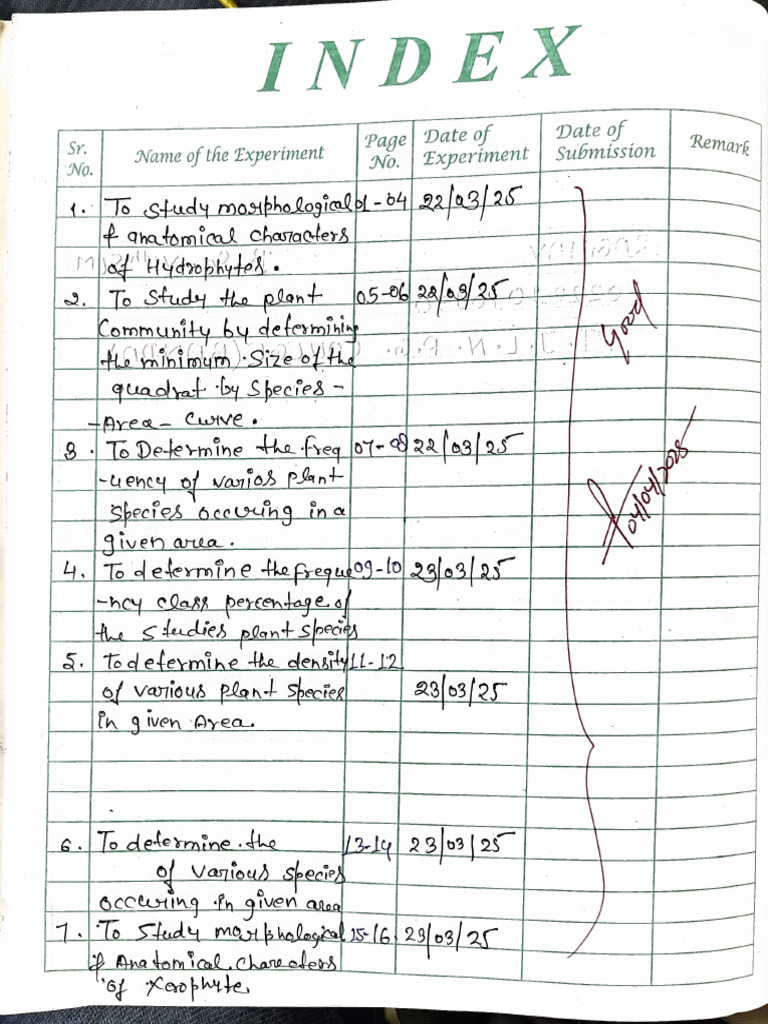 INDEX
Sr. No. Name of the Experiment Page No. Date of Experiment Date of Submission Remark
1. To study morphological 01-04 22/03/25
& anatomical characters
of Hydrophytes.
2. To Study the plant 05-06 22/03/25
Community by determining
the minimum size of the
quadrat by Species -
-Area- curve.
Good
3. To Determine the freq 07-08 22/03/25
-uency of varios plant
species occuring in a
given area.
04/04/2025
4. To determine the freque 09-10 23/03/25
-ncy class percentage of
the studies plant species
5. To determine the density 11-12
of various plant species 23/03/25
in given Area.
6. To determine the 13-14 23/03/25
of various species
occuring in given area
7. To Study morphological 15-16. 23/03/25
& Anatomical characters
of Xerophyte.